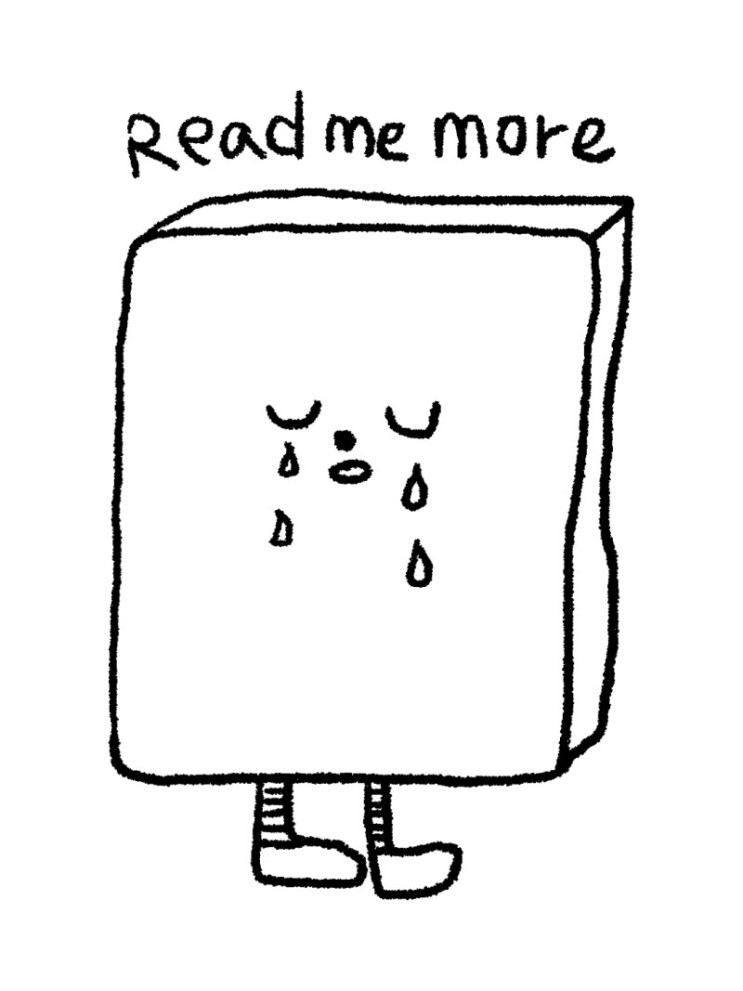 Read me more